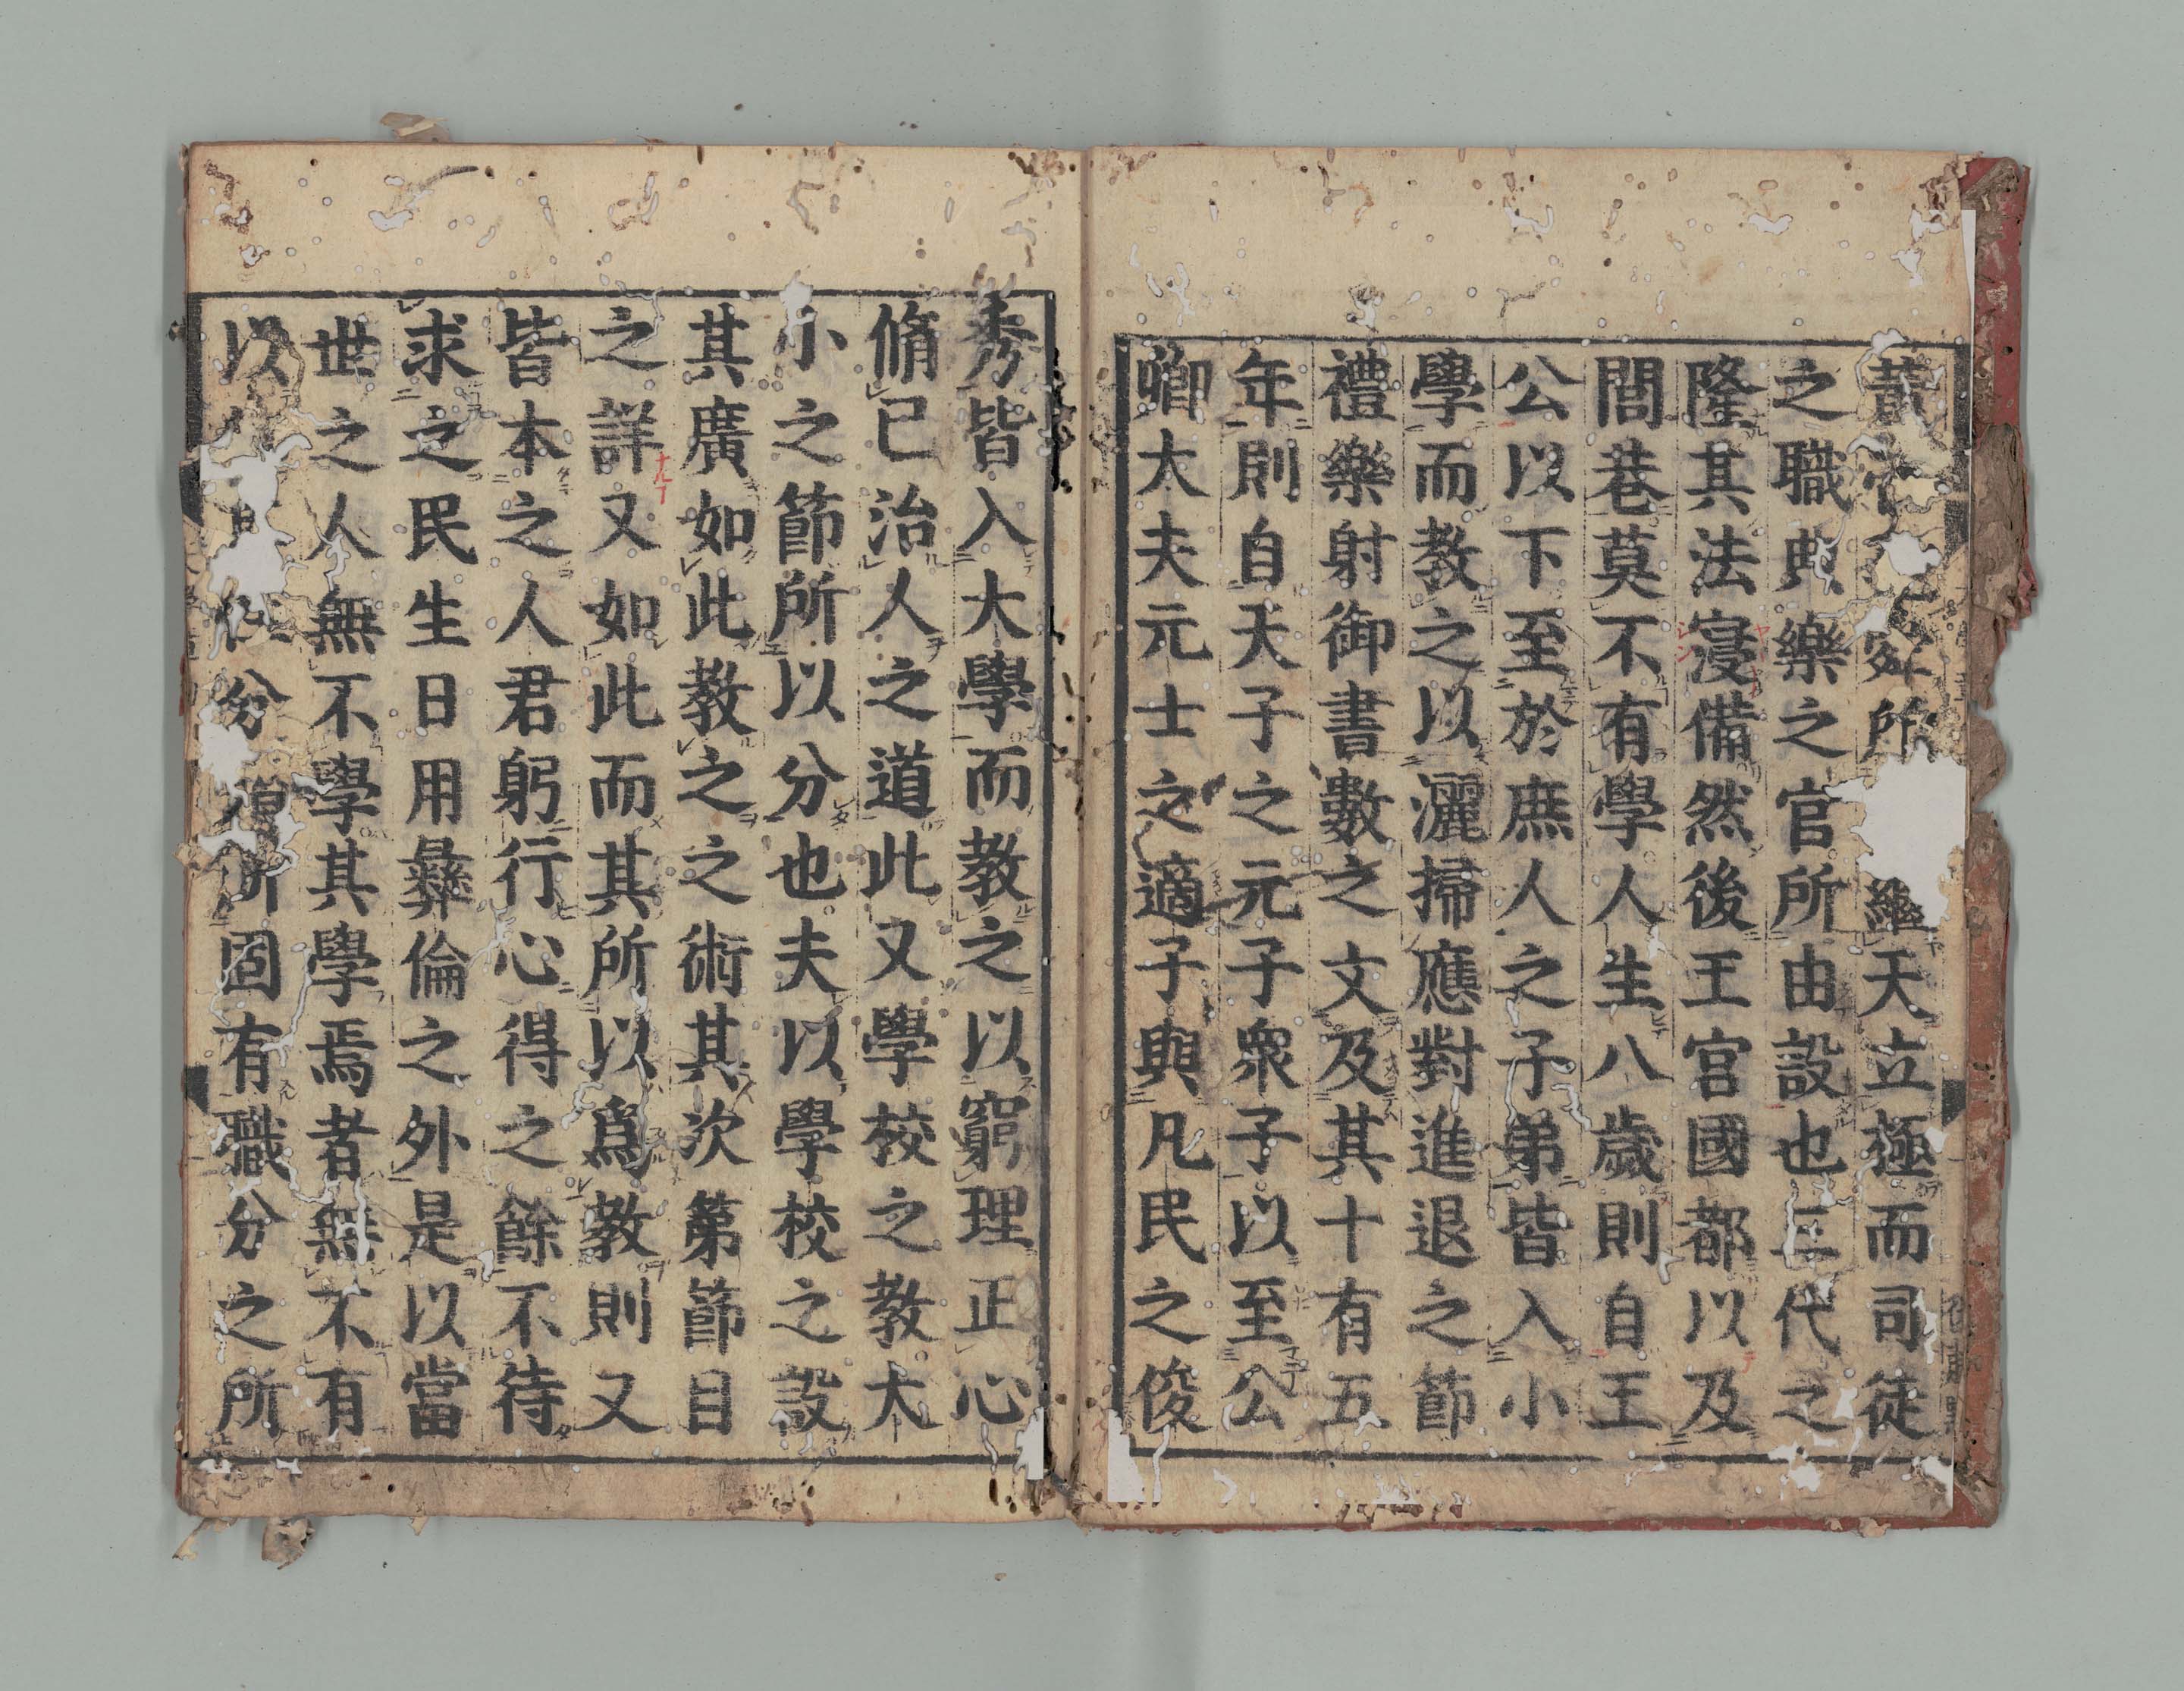 黃 所 繼天立極而司徒
之職典樂之官所由設也三代之
隆其法寖備然後王宮國都以及
閭巷莫不有學人生八歲則自王
公以下至於庶人之子弟皆入小
學而教之以灑掃應對進退之節
禮樂射御書數之文及其十有五
年則自天子之元子衆子以至公
卿大夫元士之適子與凡民之俊
秀皆入大學而教之以窮理正心
脩已治人之道此又學校之教大
小之節所以分也夫以學校之設
其廣如此教之之術其次第節目
之詳又如此而其所以爲教則又
皆本之人君躬行心得之餘不待
求之民生日用彝倫之外是以當
世之人無不學其學焉者無不有
以 分 所固有職分之所